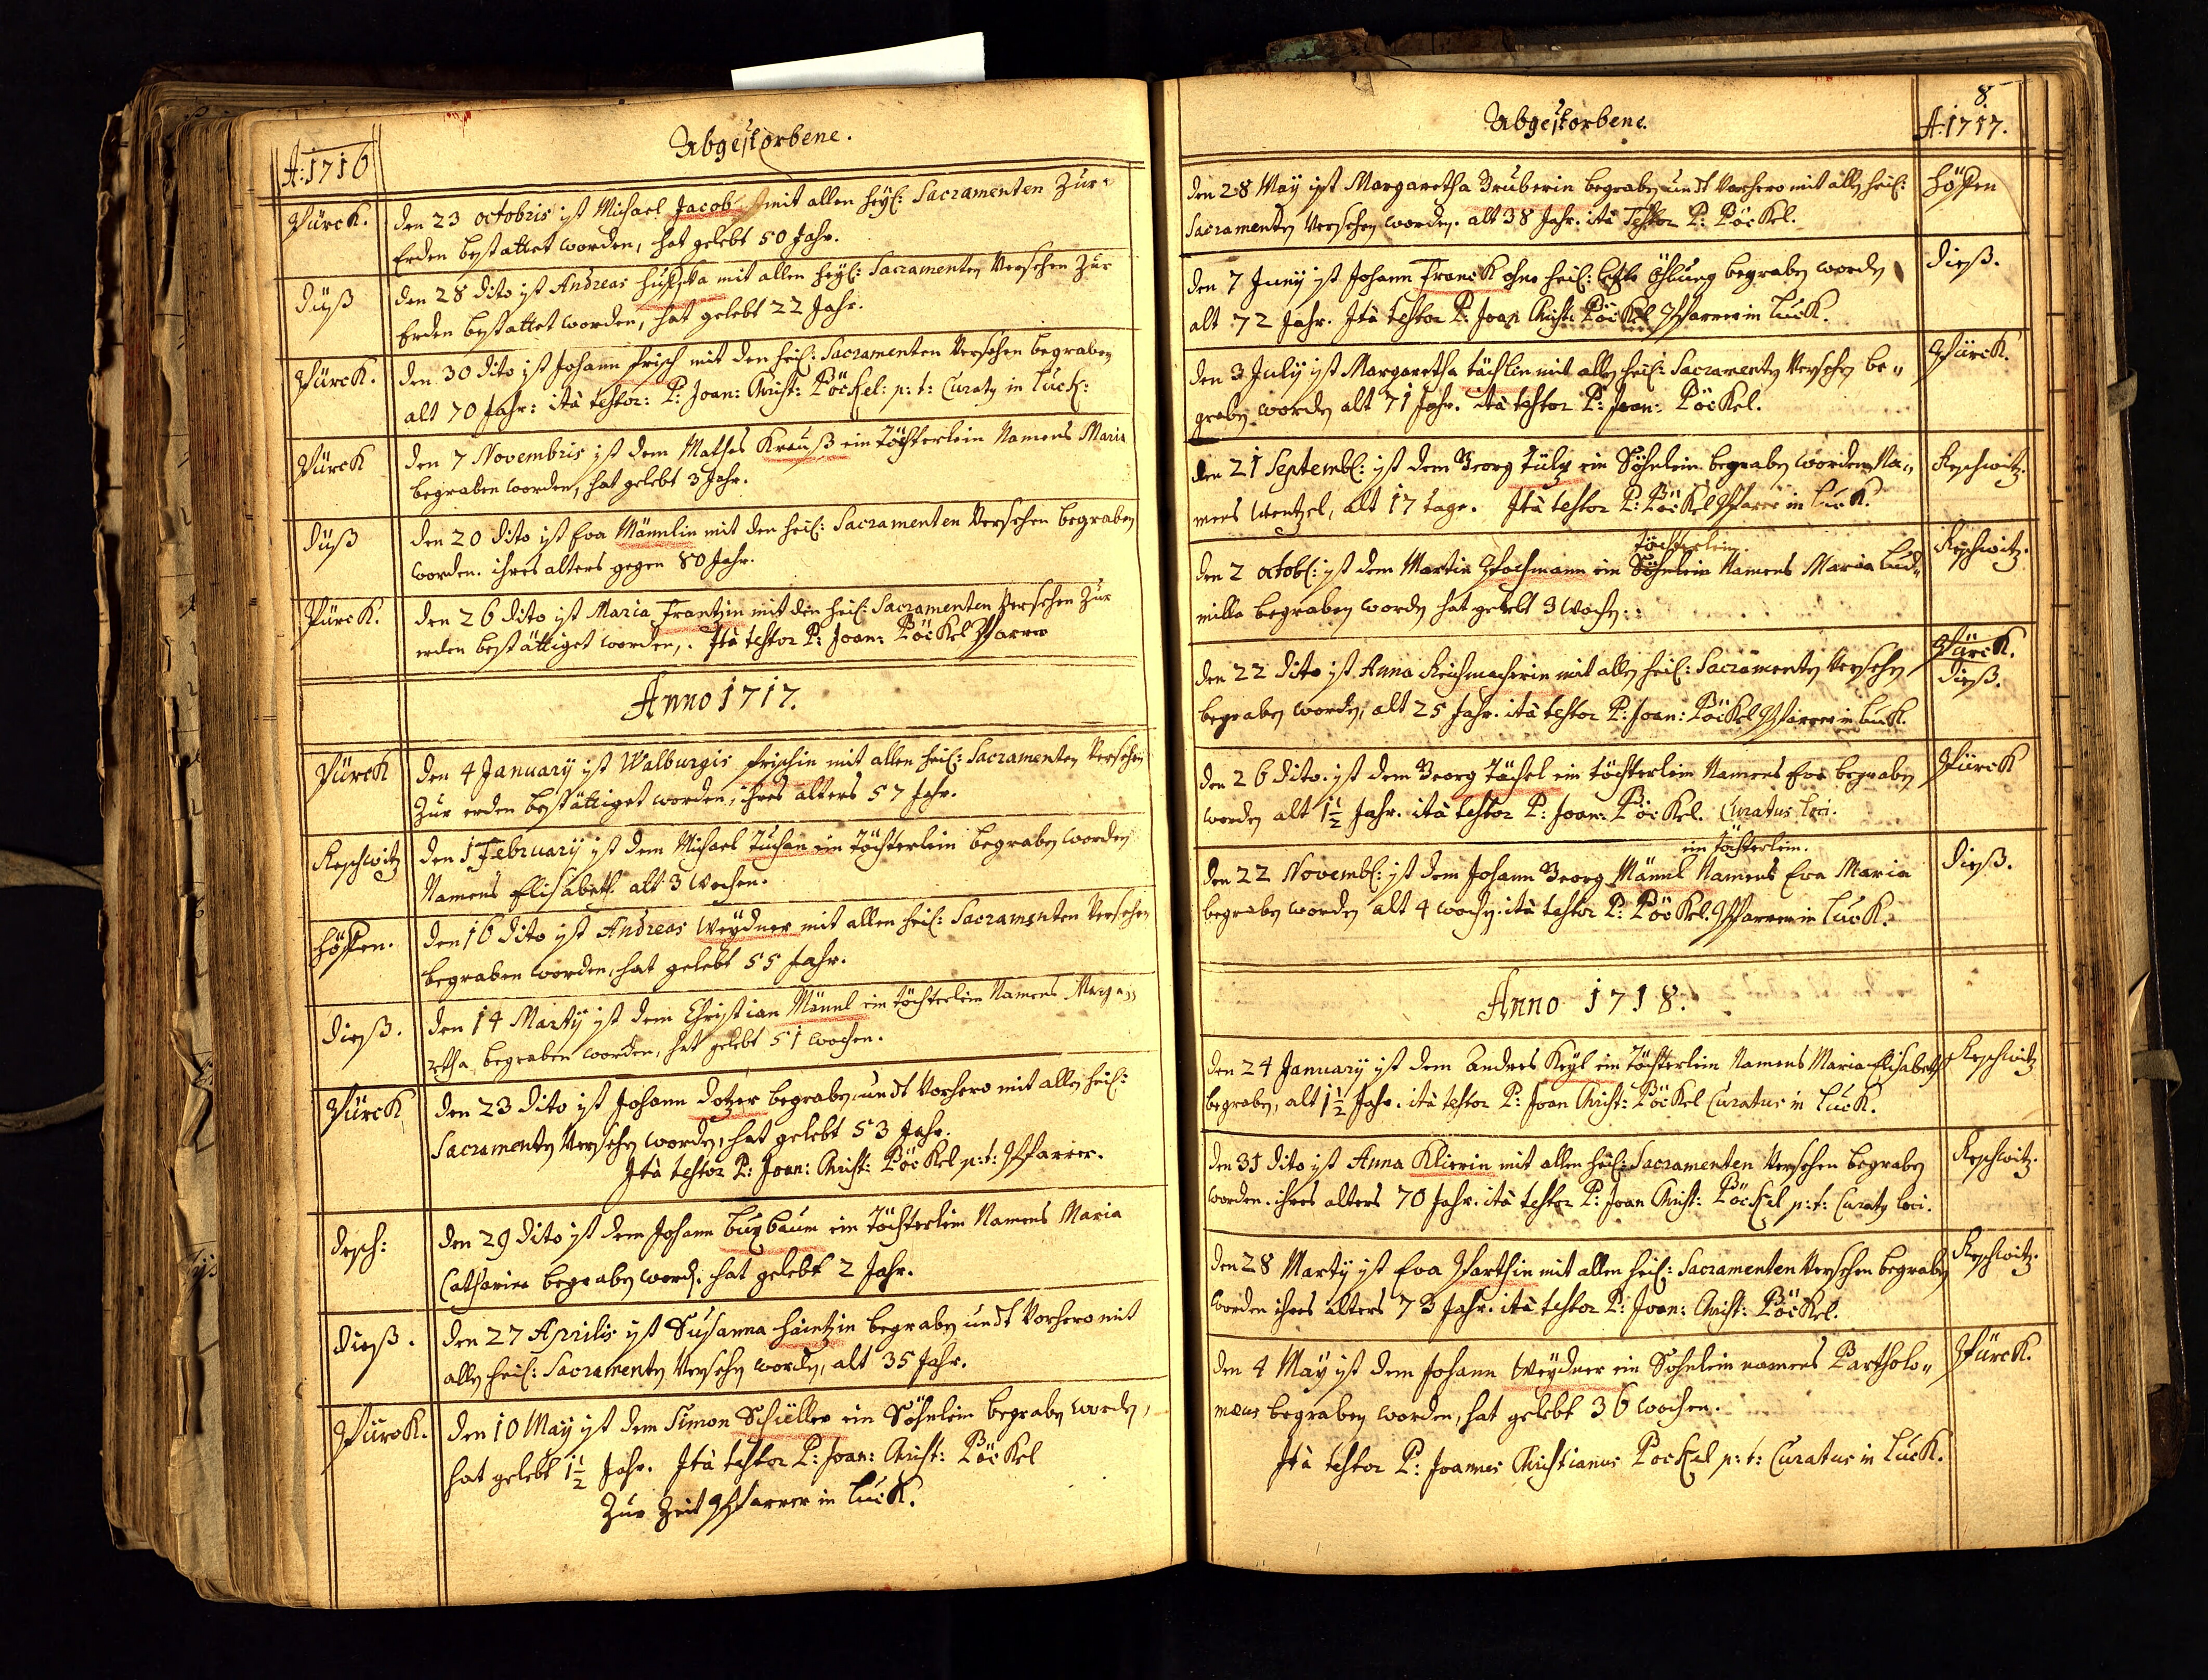 A: 1716
Abgestorbene.
Pürck.
den 23 octobris ist Michael Jacob mit allen heyl: Sacramenten Zur
Erden bestattet worden, hat gelebt 50 Jahr.
Düß
den 28 dito ist Andreas mit allen heyl: Sacramenten Versehen Zur
Erden bestattet worden, hat gelebt 22 Jahr.
Pürck.
den 30 dito ist Johann Frisch mit den heil: Sacramenten Versehen begraben
alt 70 Jahr: ità testor: P: Joan: Christ: Pöckel: p: t: Curatus in Luck:
Pürck
den 7 Novembris ist dem Mathes Krauß ein Töchterlein Namens Maria
begraben worden, hat gelebt 3 Jahr.
Düß
den 20 dito ist Eva Männlin mit den heil: Sacramenten Versehen begraben
worden. ihres alters gegen 80 Jahr.
Pürck.
den 26 dito ist Maria Frantzin mit den heil: Sacramenten Versehen Zur
erden bestättiget worden,. Ità testor P: Joan: Pöckel Pfarrer
Anno 1717.
Pürck
den 4 January ist Walburgis Frischin mit allen heil: Sacramenten Versehen
Zur erden bestättiget worden, ihres alters 57 Jahr.
Reschwitz
den 1 February ist dem Michael Tuchan ein Töchterlein begraben worden
Namens Elisabeth alt 3 Wochen.
Höffen.
den 16 dito ist Andreas Weydner mit allen heil: Sacramenten Versehen
begraben worden, hat gelebt 55 Jahr.
Dieß.
den 14 Marty ist dem Christian Männl ein töchterlein Namens Marga-
retha begraben worden, hat gelebt 51 wochen.
Pürck
den 23 dito ist Johann Dotzer begraben, undt Vorhero mit allen heil:
Sacramenten Versehen worden, hat gelebt 53 Jahr.
Ità testor P: Joan: Christ: Pöckel p: t: Pfarrer.
Desch:
den 29 dito ist dem Johann Buxbaum ein Töchterlein Namens Maria
Catharina begraben word. hat gelebt 2 Jahr.
Dieß.
den 27 Aprilis ist Susanna Haintzin begraben undt Vorhero mit
allen heil: Sacramenten Versehen worden, alt 35 Jahr.
Pürck.
den 10 May ist dem Simon Schüller ein Söhnlein begraben worden,
hat gelebt 1½ Jahr. Ità testor P: Joan: Christ: Pöckel
Zur Zeit Pfarrer in Luck.
Abgestorbene.
8
A: 1717.
den 28 May ist Margaretha Gruberin begraben undt Vorhero mit allen heil:
Höffen
Sacramenten Versehen worden. alt 38 Jahr. ità Testor P: Pöckel.
den 7 Juny ist Johann Franck ohne heil: letzte Öhlung begraben worden
Dieß.
alt 72 Jahr. Ità testor P: Joan Christ: Pöckel Pfarrer in Luck.
den 3 July ist Margaretha Tächlin mit allen heil: Sacramenten Versehen be-
Pürck.
graben worden alt 71 Jahr. ità testor P: Joan: Pöckel.
den 21 Septembl: ist dem Georg Tülp ein Söhnlein begraben worden Na-
Reschwitz.
mens Wentzel, alt 17 tage. Ità testor P: Pöckel Pfarrer in Luck.
töchterlein
den 2 octobl: ist dem Martin Pfochmann ein Söhnlein Namens Maria Lud-
Reschwitz.
milla begraben worden hat gelebt 3 Wochen.
den 22 dito ist Anna Reichmacherin mit allen heil: Sacramenten Versehen
Pürck.
Dieß.
begraben worden, alt 25 Jahr. ità testor P: Joan: Pöckel Pfarrer in Luck.
den 26 dito. ist dem Georg Tächel ein töchterlein Namens Eva begraben
Pürck
worden alt 1½ Jahr. ità testor P: Joan: Pöckel. Curatus loci.
ein töchterlein.
den 22 Novembl: ist dem Johann Georg Männl Namens Eva Maria
Dieß.
begraben worden alt 4 wochen. ità testor P: Pöckel. Pfarrer in Luck.
Anno 1718.
den 24 January ist dem Andres Keyl ein Töchterlein Namens Maria Elisabeth
Reschwitz
begraben, alt 1½ Jahr. ità testor P: Joan Christ: Pöckel Curatus in Luck.
den 31 dito ist Anna Klierin mit allen heil: Sacramenten Versehen begraben
Reschwitz.
worden. ihres alters 70 Jahr. ità testor P: Joan Christ: Pöckel p: t: Curatus loci.
den 28 Marty ist Eva Parthin mit allen heil: Sacramenten Versehen begraben
Reschwitz.
worden ihres alters 73 Jahr. ità testor P: Joan: Christ: Pöckel.
den 4 May ist dem Johann Weydner ein Sohnlein namens Bartholo-
Pürck.
mæus begraben worden, hat gelebt 36 wochen.
Ità testor P: Joannes Christianus Pockel p: t: Curatus in Luck.